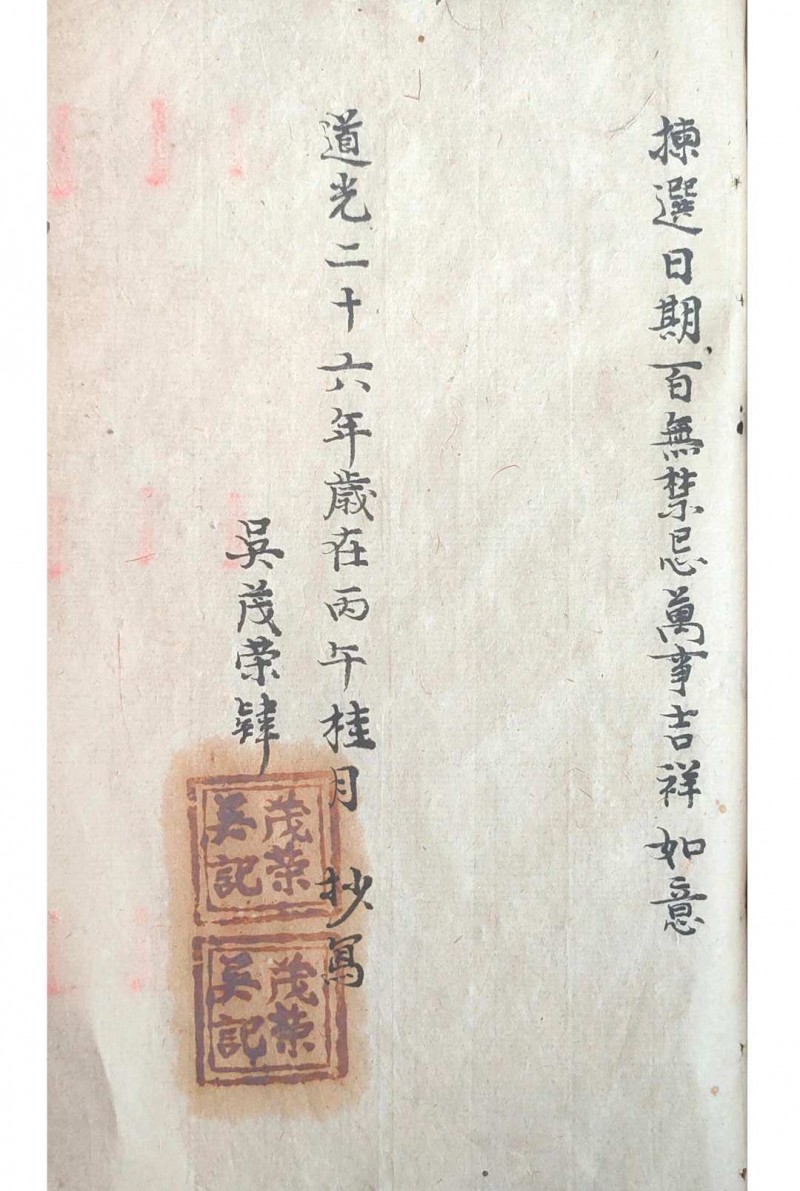 揀選日期百無禁忌萬事吉祥如意
道光二十六年歲在丙午桂月 抄寫
吳茂榮肆
茂榮
吳記
茂榮
吳記